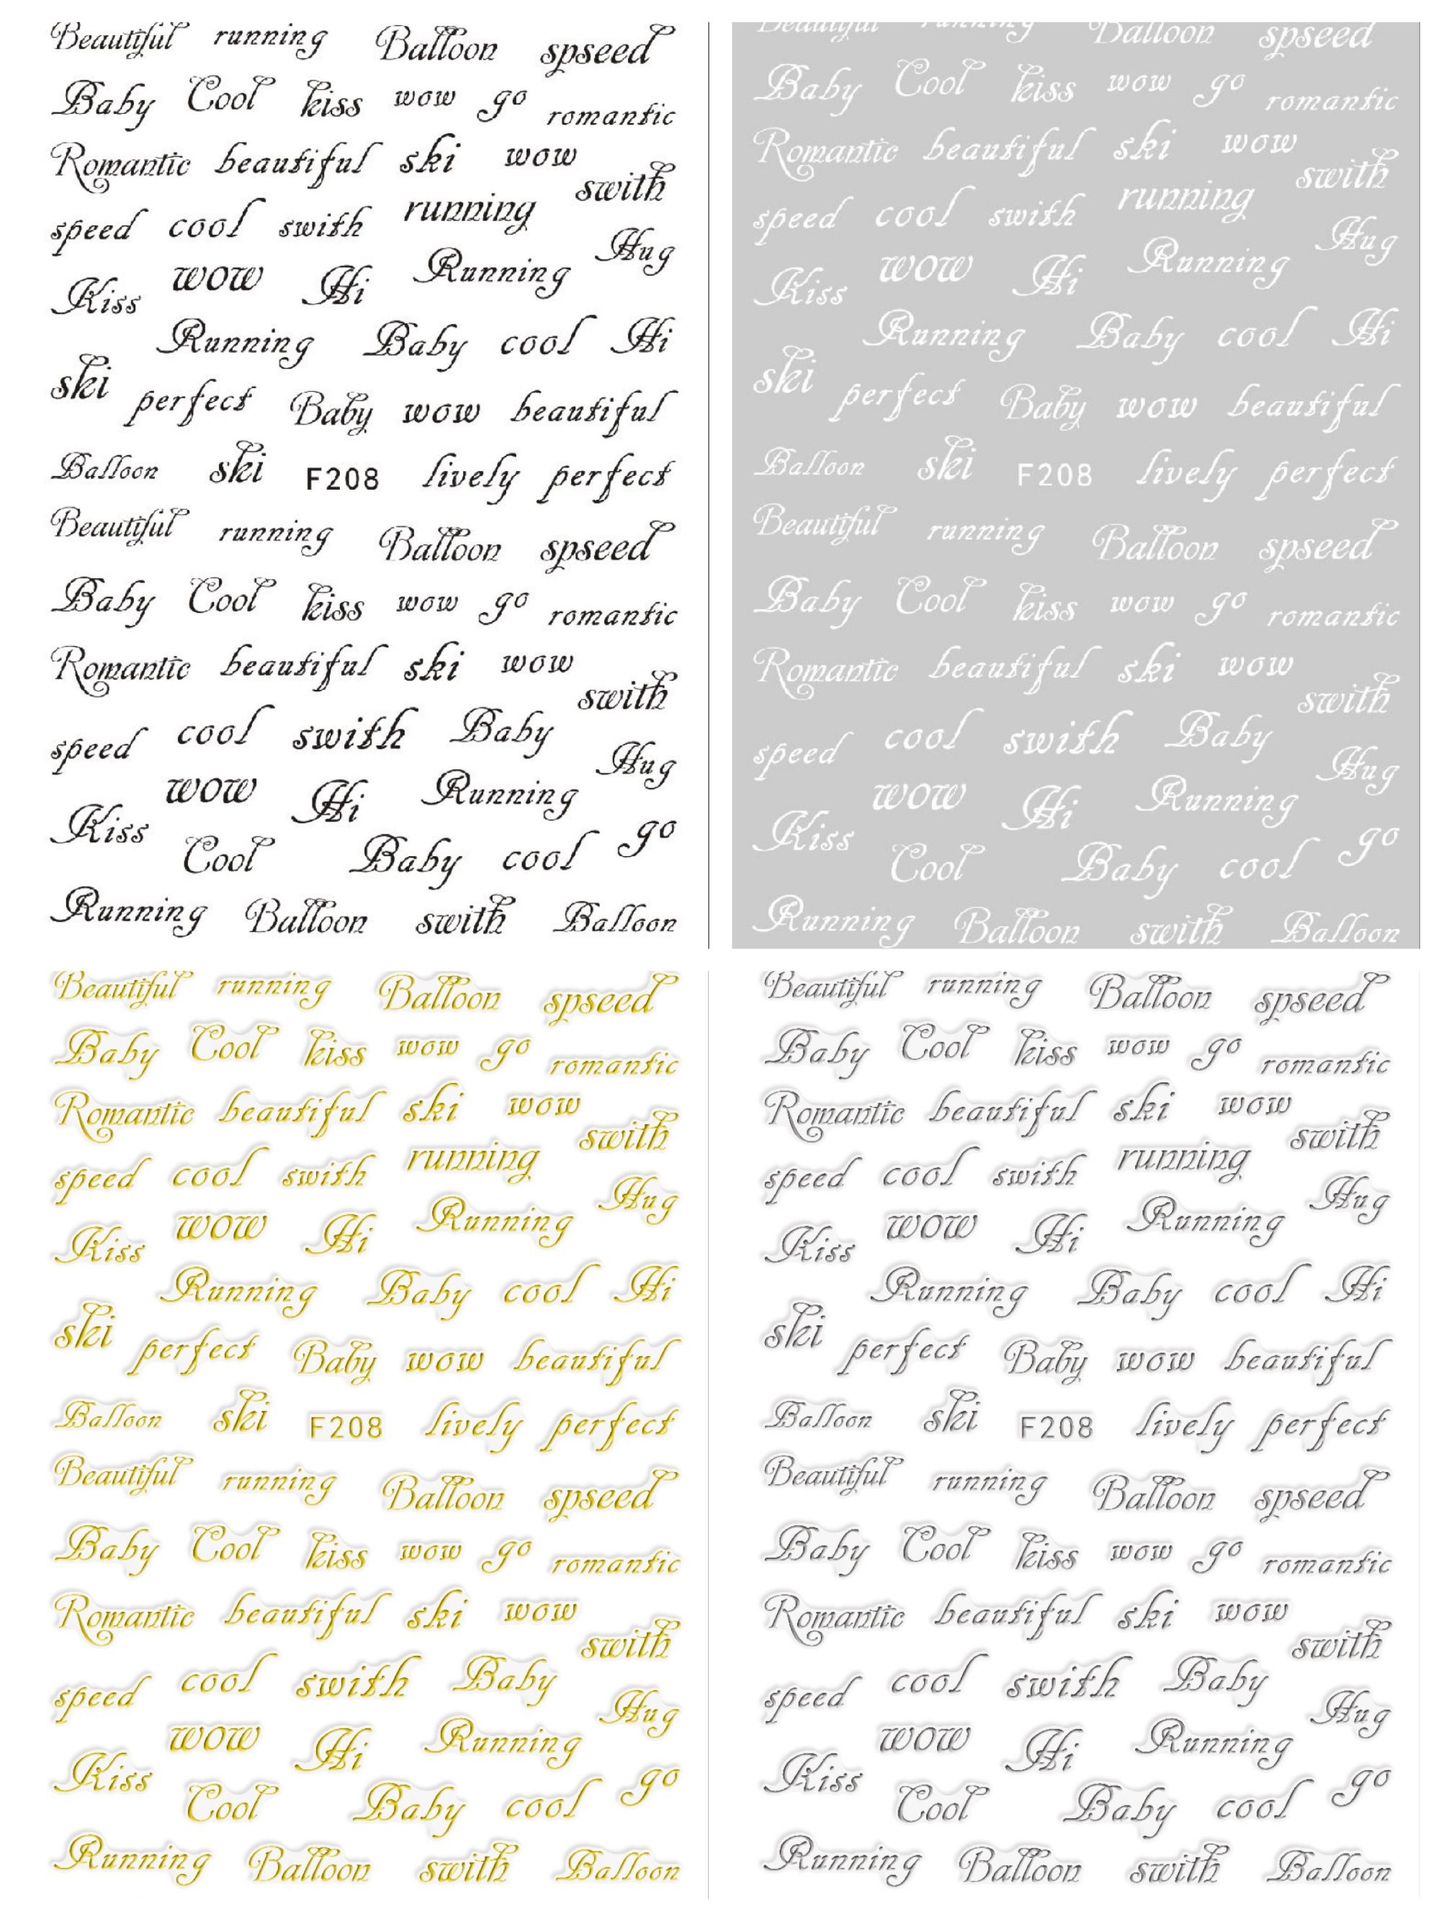 Beautiful running Balloon spseed
Baby Cool kiss wow go romantic
Romantic beautiful ski wow swith
speed cool swith running Hug
Kiss wow Hi Running
Running Baby cool Hi
ski perfect Baby wow beautiful
Balloon ski F208 lively perfect
Beautiful running Balloon spseed
Baby Cool kiss wow go romantic
Romantic beautiful ski wow swith
speed cool swith Baby Hug
Kiss wow Hi Running go
Cool Baby cool
Running Balloon swith Balloon
Beautiful running Balloon spseed
Baby Cool kiss wow go romantic
Romantic beautiful ski wow swith
speed cool swith running Hug
Kiss wow Hi Running
Running Baby cool Hi
ski perfect Baby wow beautiful
Balloon ski F208 lively perfect
Beautiful running Balloon spseed
Baby Cool kiss wow go romantic
Romantic beautiful ski wow swith
speed cool swith Baby Hug
Kiss wow Hi Running go
Cool Baby cool
Running Balloon swith Balloon
Beautiful running Balloon spseed
Baby Cool kiss wow go romantic
Romantic beautiful ski wow swith
speed cool swith running Hug
Kiss wow Hi Running
Running Baby cool Hi
ski perfect Baby wow beautiful
Balloon ski F208 lively perfect
Beautiful running Balloon spseed
Baby Cool kiss wow go romantic
Romantic beautiful ski wow swith
speed cool swith Baby Hug
Kiss wow Hi Running go
Cool Baby cool
Running Balloon swith Balloon
Beautiful running Balloon spseed
Baby Cool kiss wow go romantic
Romantic beautiful ski wow swith
speed cool swith running Hug
Kiss wow Hi Running
Running Baby cool Hi
ski perfect Baby wow beautiful
Balloon ski F208 lively perfect
Beautiful running Balloon spseed
Baby Cool kiss wow go romantic
Romantic beautiful ski wow swith
speed cool swith Baby Hug
Kiss wow Hi Running go
Cool Baby cool
Running Balloon swith Balloon